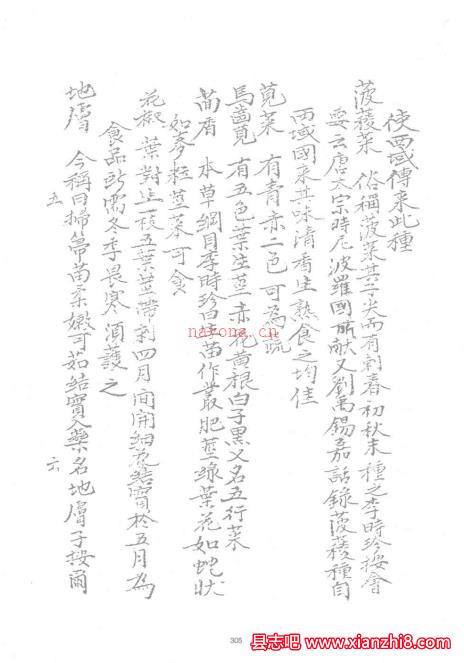 使西域傳來此種
菠薐菜 俗稱菠菜其子尖而有刺春初秋末種之李時珍按會
要云唐太宗時尼波羅國所献又劉禹錫嘉話録菠薐種自
西域國來其味清香生熟食之均佳
莧菜 有青赤二色可為蔬
馬齒莧 有五色葉生莖赤花黄根白子黑又名五行菜
茴香 本草綱目李時珍曰生苗作叢肥莖綠葉花如蛇狀
如麥粒莖菜可食
花椒 葉對生一枝五葉葉帶刺四月間開細花結實於五月為
食品所需冬季畏寒須護之
地膚 今稱曰掃箒苗柔嫩可茹結實入藥名地膚子按爾
五
六
305
nayona.cn
县志吧
www.xianzhi8.com